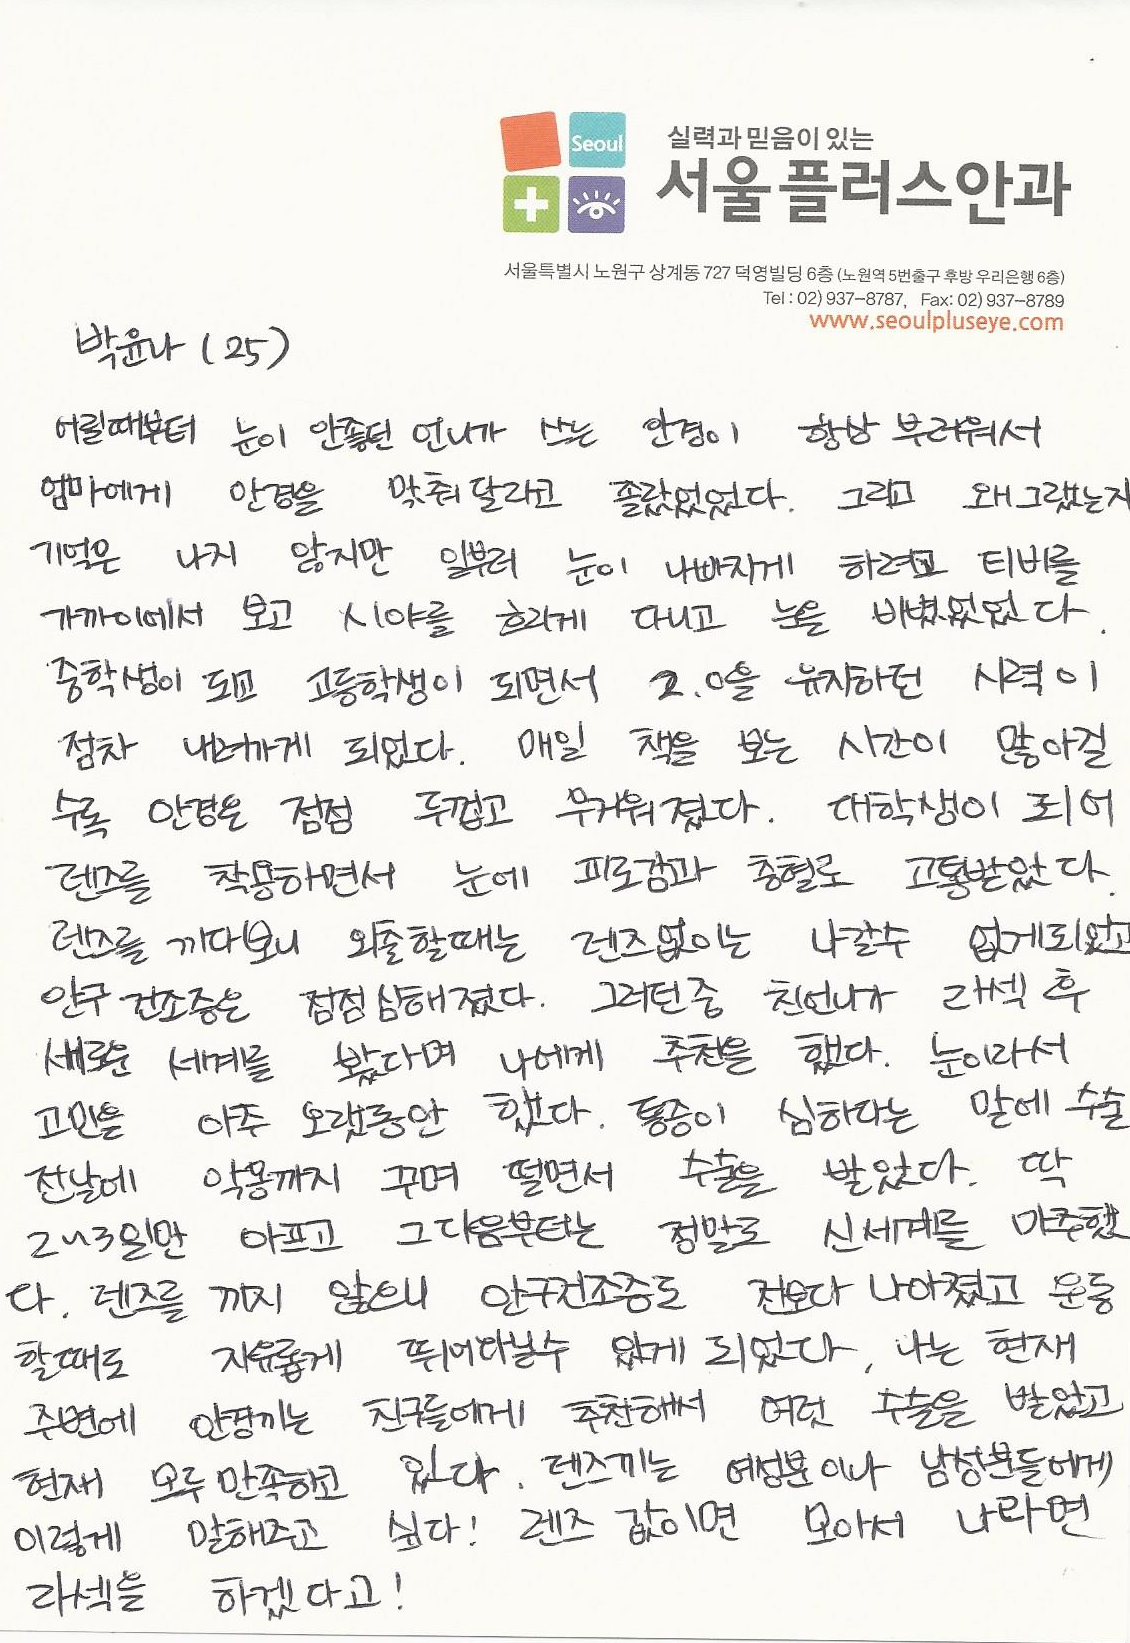 Seoul
실력과 믿음이 있는
서울플러스안과
서울특별시 노원구 상계동 727 덕영빌딩 6층 (노원역 5번출구 후방 우리은행 6층)
Tel : 02) 937-8787, Fax: 02) 937-8789
www.seoulpluseye.com
박윤나 (25)
어릴때부터 눈이 안좋던 언니가 쓰는 안경이 항상 부러워서
엄마에게 안경을 맞춰달라고 졸랐었었다. 그리고 왜그랬는지
기억은 나지 않지만 일부러 눈이 나빠지게 하려고 티비를
가까이에서 보고 시야를 흐리게 다니고 눈을 비볐었었다.
중학생이 되고 고등학생이 되면서 2.0을 유지하던 시력이
점차 내려가게 되었다. 매일 책을 보는 시간이 많아질
수록 안경은 점점 두껍고 무거워졌다. 대학생이 되어
렌즈를 착용하면서 눈에 피로감과 충혈로 고통받았다.
렌즈를 끼다보니 외출할때는 렌즈없이는 나갈수 없게되었고
안구건조증은 점점 심해졌다. 그러던중 친언니가 라섹 후
새로운 세계를 봤다며 나에게 추천을 했다. 눈이라서
고민을 아주 오랫동안 했다. 통증이 심하다는 말에 수술
전날에 악몽까지 꾸며 떨면서 수술을 받았다. 딱
2~3일만 아프고 그다음부터는 정말로 신세계를 마주했
다. 렌즈를 끼지 않으니 안구건조증도 전보다 나아졌고 운동
할때도 자유롭게 뛰어다닐수 있게 되었다. 나는 현재
주변에 안경끼는 친구들에게 추천해서 여럿 수술을 받았고
현재 모두 만족하고 있다. 렌즈끼는 여성분이나 남성분들에게
이렇게 말해주고 싶다! 렌즈 값이면 모아서 나라면
라섹을 하겠다고!